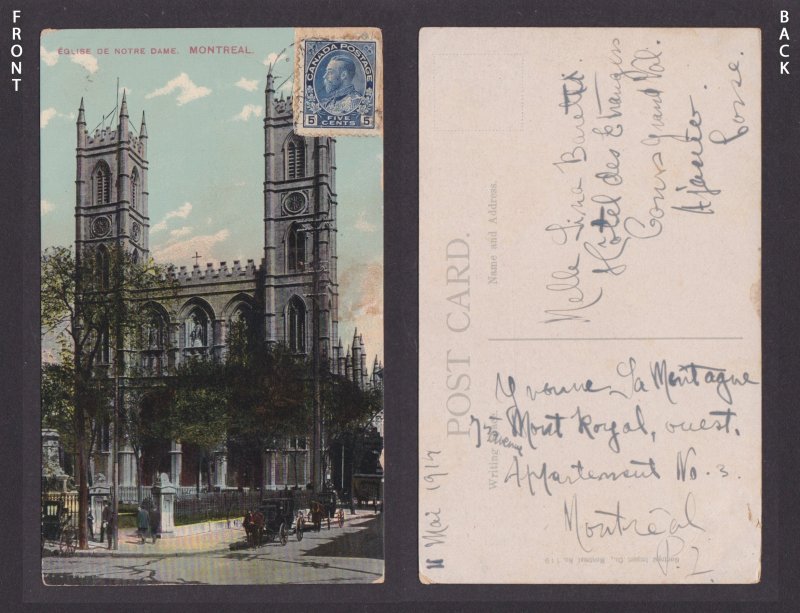 FRONT
ÉGLISE DE NOTRE DAME. MONTREAL.
CANADA POSTAGE
5 5
FIVE CENTS
BACK
POST CARD.
Name and Address.
Melle Lina
Hôtel des Etrangers
Cours Grand Val.
Ajaccio.
Corse.
Writing
Yvonne La Montagne
75 Mont Royal, ouest.
avenue
Appartement No. 3
Montréal
11 Mai 1917
Montreal Import Co., Montreal No. 119